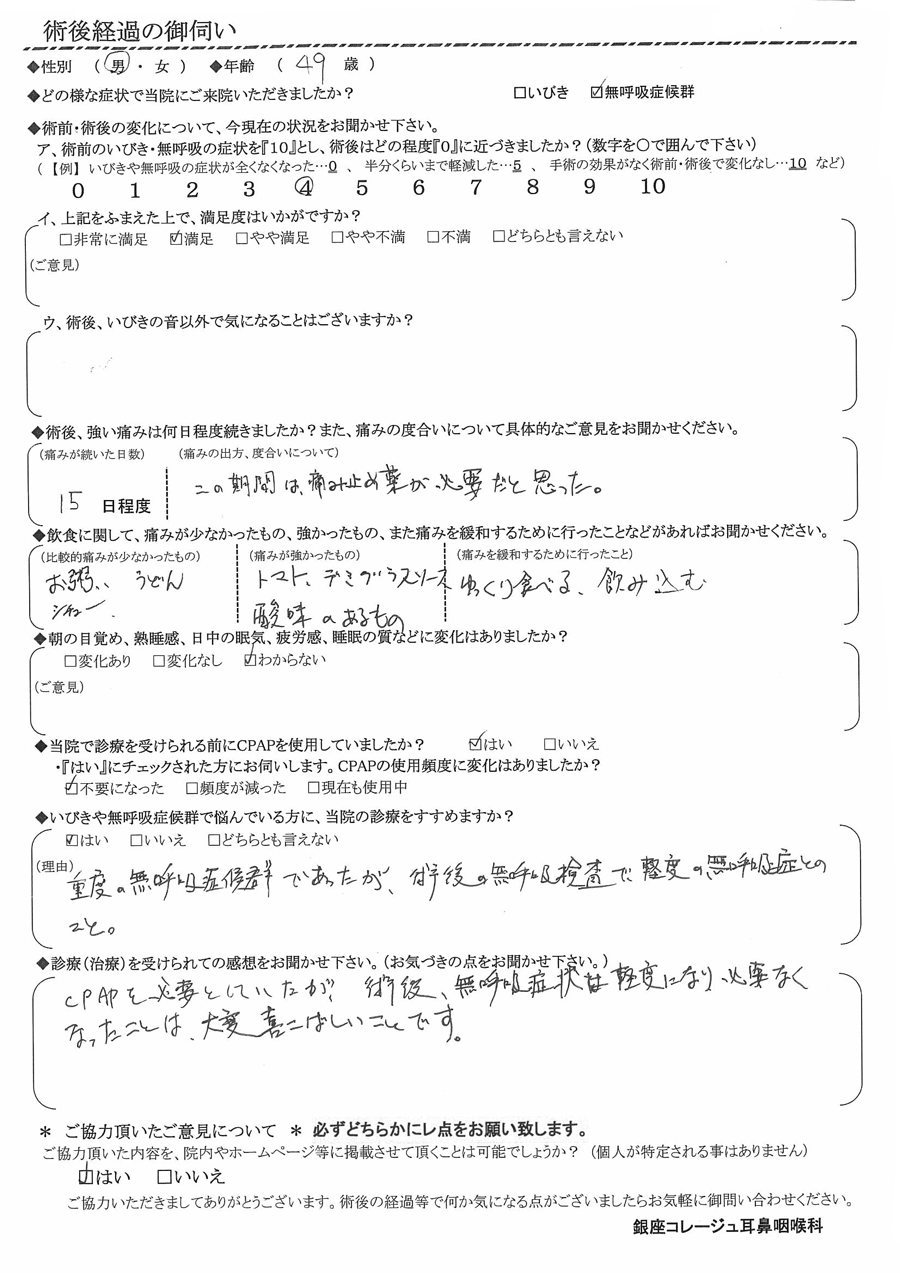 術後経過の御伺い
◆性別 （ 男 ・ 女 ） ◆年齢 （ 49 歳 ）
◆どの様な症状で当院にご来院いただきましたか？ □いびき ☑無呼吸症候群
◆術前・術後の変化について、今現在の状況をお聞かせ下さい。
ア、術前のいびき・無呼吸の症状を『10』とし、術後はどの程度『0』に近づきましたか？（数字を〇で囲んで下さい）
（【例】 いびきや無呼吸の症状が全くなくなった…0 、 半分くらいまで軽減した…5 、 手術の効果がなく術前・術後で変化なし…10 など）
0 1 2 3 ④ 5 6 7 8 9 10
イ、上記をふまえた上で、満足度はいかがですか？
□非常に満足 ☑満足 □やや満足 □やや不満 □不満 □どちらとも言えない
（ご意見）
ウ、術後、いびきの音以外で気になることはございますか？
◆術後、強い痛みは何日程度続きましたか？また、痛みの度合いについて具体的なご意見をお聞かせください。
（痛みが続いた日数） （痛みの出方、度合いについて）
この期間は、痛み止め薬が必要だと思った。
15 日程度
◆飲食に関して、痛みが少なかったもの、強かったもの、また痛みを緩和するために行ったことなどがあればお聞かせください。
（比較的痛みが少なかったもの） （痛みが強かったもの） （痛みを緩和するために行ったこと）
お粥、うどん トマト、デミグラスソース ゆっくり食べる、飲み込む
酸味のあるもの
◆朝の目覚め、熟睡感、日中の眠気、疲労感、睡眠の質などに変化はありましたか？
□変化あり □変化なし ☑わからない
（ご意見）
◆当院で診療を受けられる前にCPAPを使用していましたか？ ☑はい □いいえ
・『はい』にチェックされた方にお伺いします。CPAPの使用頻度に変化はありましたか？
☑不要になった □頻度が減った □現在も使用中
◆いびきや無呼吸症候群で悩んでいる方に、当院の診療をすすめますか？
☑はい □いいえ □どちらとも言えない
（理由）
重度の無呼吸症候群であったが、術後の無呼吸検査で軽度の無呼吸症との
こと。
◆診療（治療）を受けられての感想をお聞かせ下さい。（お気づきの点をお聞かせ下さい。）
CPAPを必要としていたが、術後、無呼吸症状は軽度になり必要なく
なったことは、大変喜こばしいことです。
＊ ご協力頂いたご意見について ＊ 必ずどちらかにレ点をお願い致します。
ご協力頂いた内容を、院内やホームページ等に掲載させて頂くことは可能でしょうか？ （個人が特定される事はありません）
☑はい □いいえ
ご協力いただきましてありがとうございます。術後の経過等で何か気になる点がございましたらお気軽に御問い合わせください。
銀座コレージュ耳鼻咽喉科